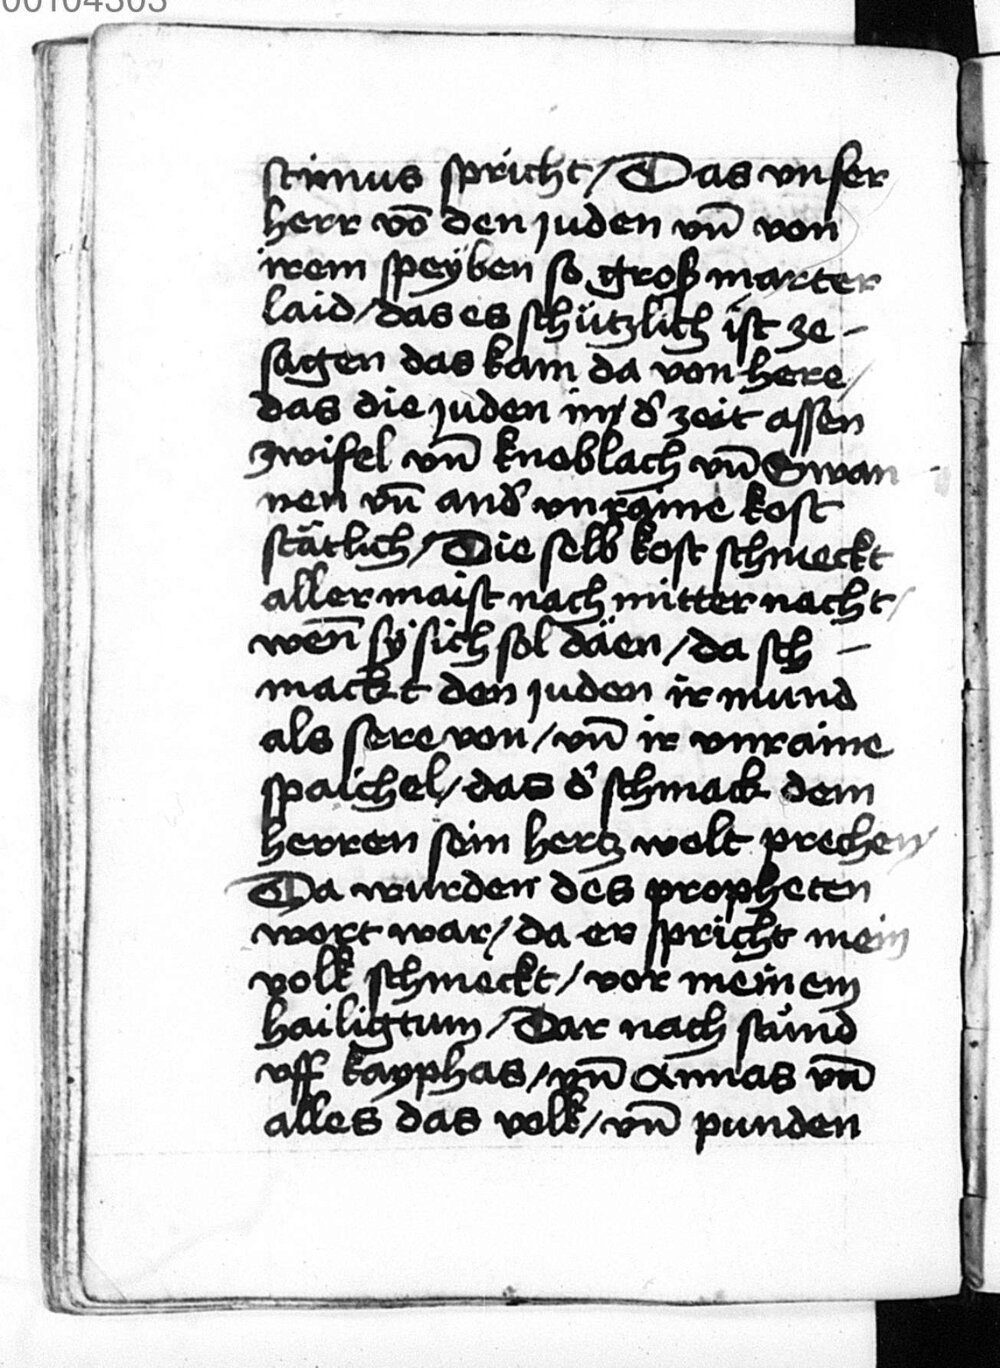 stimus spricht / Das vnser
herr vō den juden vn̄ von
irem speÿben so groß marter
laid / das es schützlich ist ze -
sagen das kam da von here /
das die juden in d' zeit assen
zwifel vn̄ knoblach vn̄
nen vn̄ and' vnraine kost
stätlich / Die selb kost schmeckt
aller maist nach mitter nacht /
wen̄ sÿ sich sol däen / da sch -
mackt den juden ir mund
als sere von / vn̄ ir vnraine
spaichel / das d' schmack dem
herren sein hertz wolt prechen
Da wurden des propheten
wort war / da er spricht mein
volk schmeckt / vor meinem
hailigtum / Dar nach stůnd
vff kayphas / vn̄ Annas vn̄
alles das volk / vn̄ punden